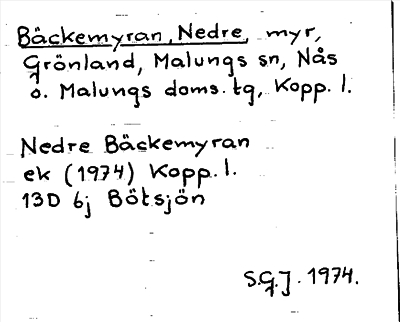 Bäckemyran, Nedre, myr,
Grönland, Malungs sn, Nås
o. Malungs doms. tg, Kopp. l.
Nedre Bäckemyran
ek (1974) Kopp. l.
13D 6j Bötsjön
S.G.J. 1974.